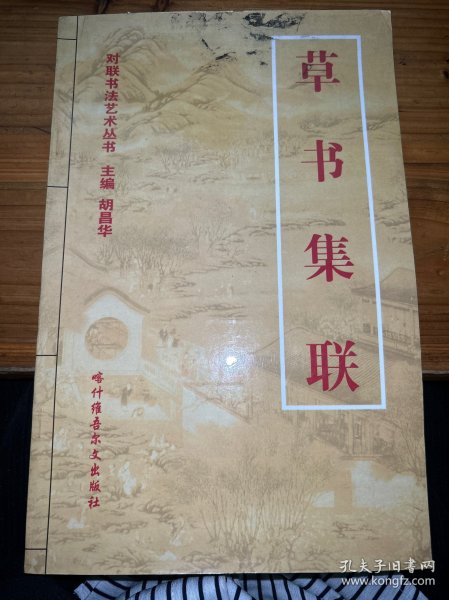 草书集联
对联书法艺术丛书 主编 胡昌华
喀什维吾尔文出版社
孔夫子旧书网
www.kongfz.com